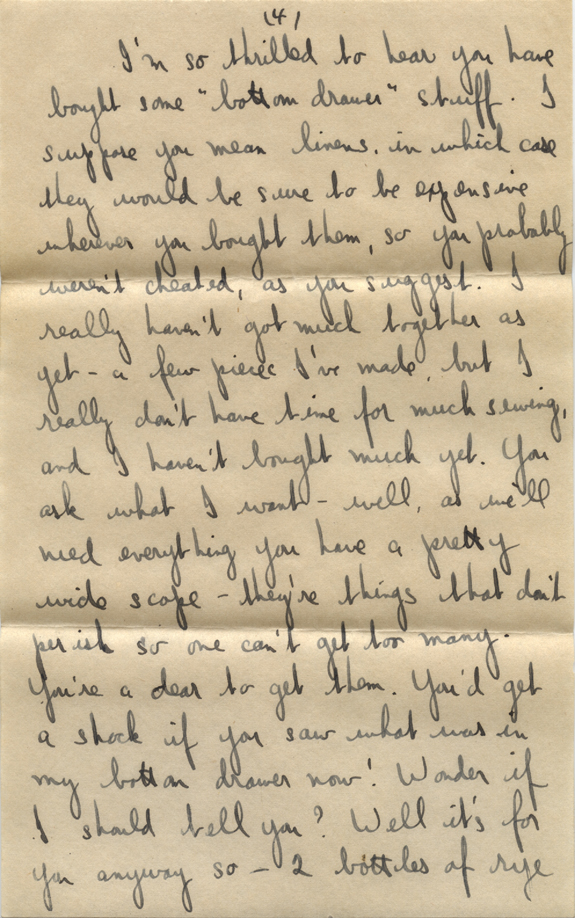 (4)
I'm so thrilled to hear you have
bought some "bottom drawer" stuff. I
suppose you mean linens, in which case
they would be sure to be expensive
wherever you bought them, so you probably
weren't cheated, as you suggest. I
really haven't got much together as
yet - a few pieces I've made, but I
really don't have time for much sewing,
and I haven't bought much yet. You
ask what I want - well, as we'll
need everything you have a pretty
wide scope - they're things that don't
perish so one can't get too many.
You're a dear to get them. You'd get
a shock if you saw what was in
my bottom drawer now! Wonder if
I should tell you? Well it's for
you anyway so - 2 bottles of rye